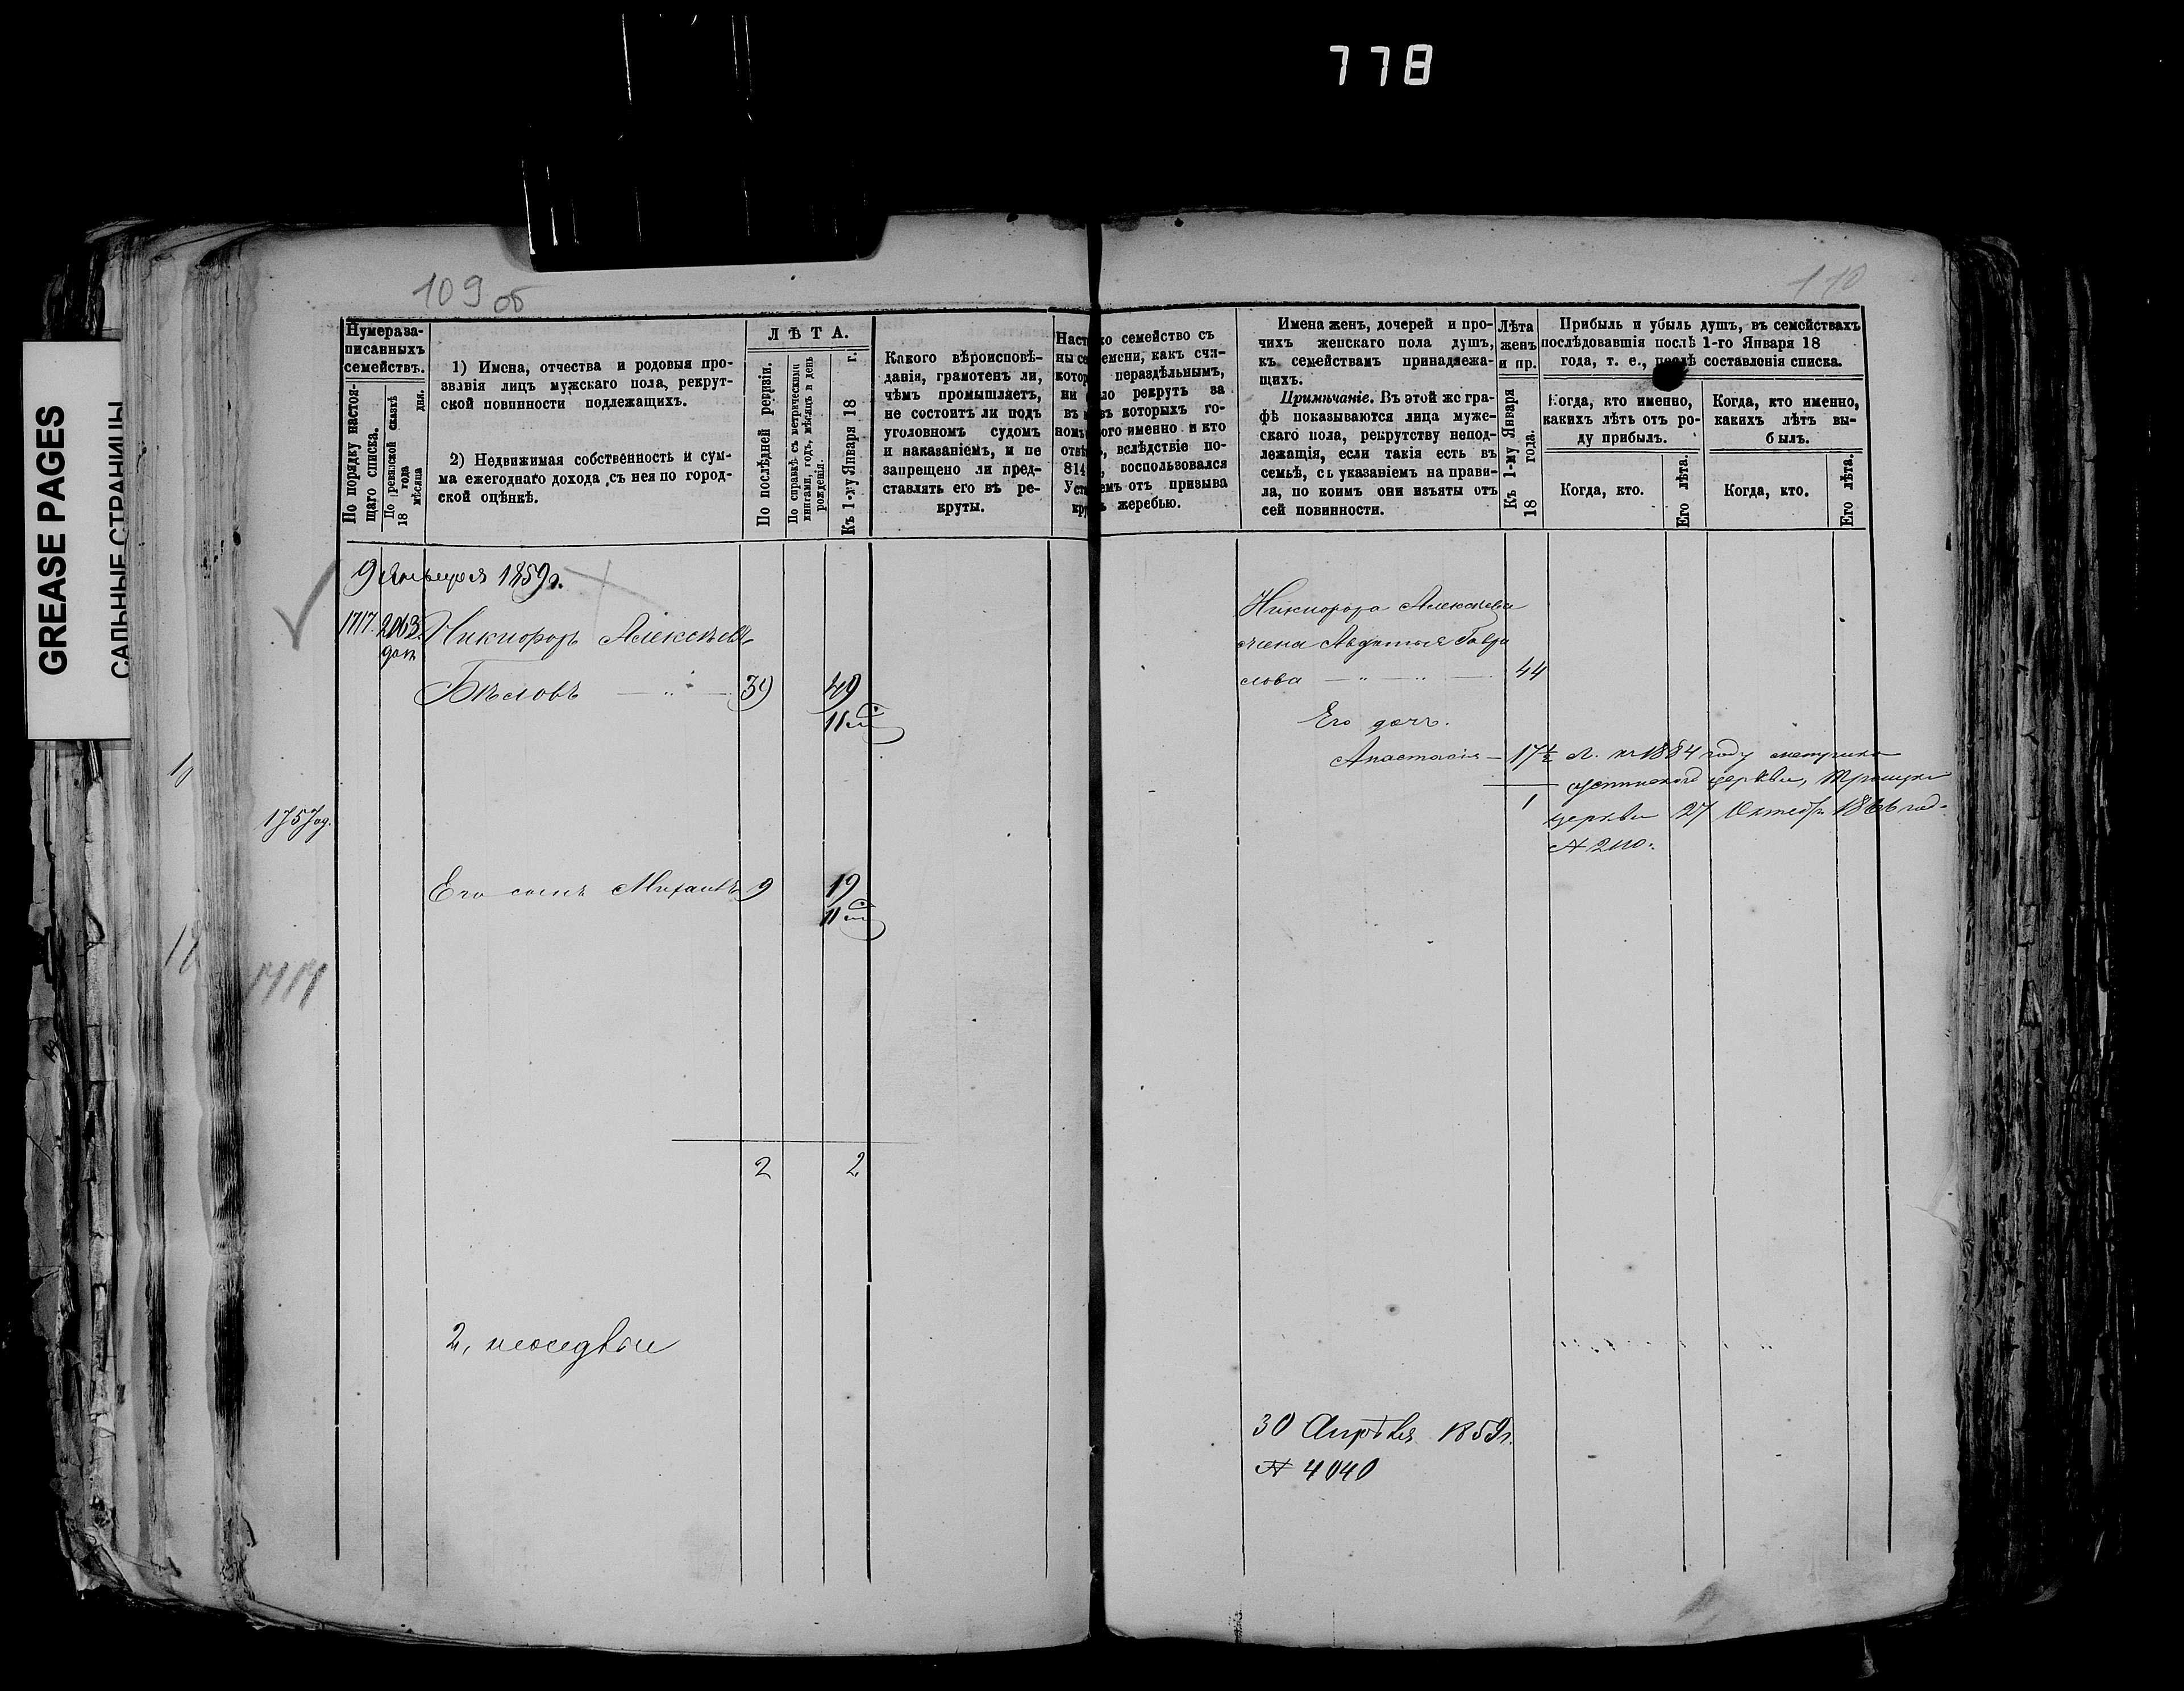 778
GREASE PAGES
САЛЬНЫЕ СТРАНИЦЫ
109 об
110
Нумера за-
писанныхъ
семействъ.
По порядку настоя-
щаго списка.
По ревизской сказкѣ
18 года
мѣсяца дня.
1) Имена, отчества и родовыя про-
званія лицъ мужскаго пола, рекрут-
ской повинности подлежащихъ.
2) Недвижимая собственность и сум-
ма ежегоднаго дохода съ нея по город-
ской оцѣнкѣ.
ЛѢТА.
По послѣдней ревизіи.
По справкѣ съ метрическими
книгами, годъ, мѣсяцъ и день
рожденія.
Къ 1-му Января 18 г.
Какого вѣроисповѣ-
данія, грамотенъ ли,
чѣмъ промышляетъ,
не состоитъ ли подъ
уголовномъ судомъ
и наказаніемъ, и не
запрещено ли пред-
ставлять его въ ре-
круты.
Наст ко семейство съ
ны се емени, какъ счи-
котор нераздѣльнымъ,
ни ло рекрутъ за
въ въ которыхъ го-
номъ ого именно и кто
отвѣ ь, вслѣдствіе по-
814 , воспользовался
Уст емъ отъ призыва
кру ь жеребью.
Имена женъ, дочерей и про-
чихъ женскаго пола душъ,
къ семействамъ принадлежа-
щихъ.
Примѣчаніе. Въ этой же гра-
фѣ показываются лица муже-
скаго пола, рекрутству непод-
лежащія, если такія есть въ
семьѣ, съ указаніемъ на прави-
ла, по коимъ они изъяты отъ
сей повинности.
Лѣта
женъ
и пр.
Къ 1-му Января
18 года.
Прибыль и убыль душъ, въ семействахъ
послѣдовавшія послѣ 1-го Января 18
года, т. е., послѣ составленія списка.
Когда, кто именно,
какихъ лѣтъ отъ ро-
ду прибылъ.
Когда, кто именно,
какихъ лѣтъ вы-
былъ.
Когда, кто.
Его лѣта.
Когда, кто.
Его лѣта.
9 Января 1859 г.
1717. 2063. Никифоръ Алексѣевъ
Бѣловъ 39 49
11 м
1757 од.
Его сынъ Михаилъ 9 19
11 м
1717
2 2
2, неосѣдлые
Никифора Алексѣева
жена Авдотья Гаври
лова 44
Его дочь.
Анастасія 17½ л. 1884 году
церкви, Троицкой
1 церкви 27 Октября 1866 год
№ 2110.
30 Апрѣля 1859 г.
№ 4040